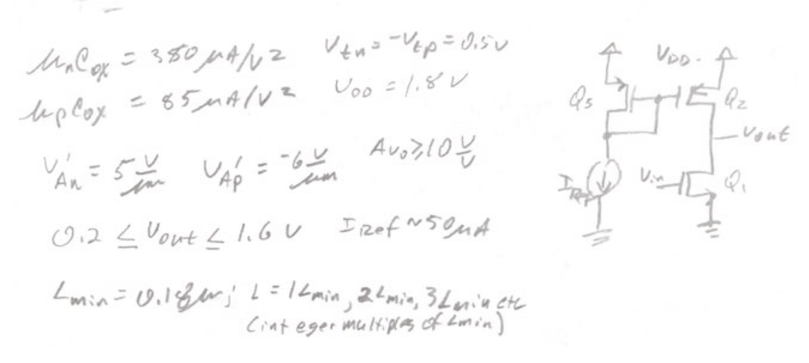 μnCox = 380 μA/V² Vtn = -Vtp = 0.5V
μpCox = 85 μA/V² VDD = 1.8V
V'An = 5 V/μm V'Ap = -6 V/μm Avo ≥ 10 V/V
0.2 ≤ Vout ≤ 1.6 V IRef ~ 50μA
Lmin = 0.18μm; L = 1Lmin, 2Lmin, 3Lmin etc
(integer multiples of Lmin)
VDD
Q3
Q2
Vout
IRef
Vin
Q1